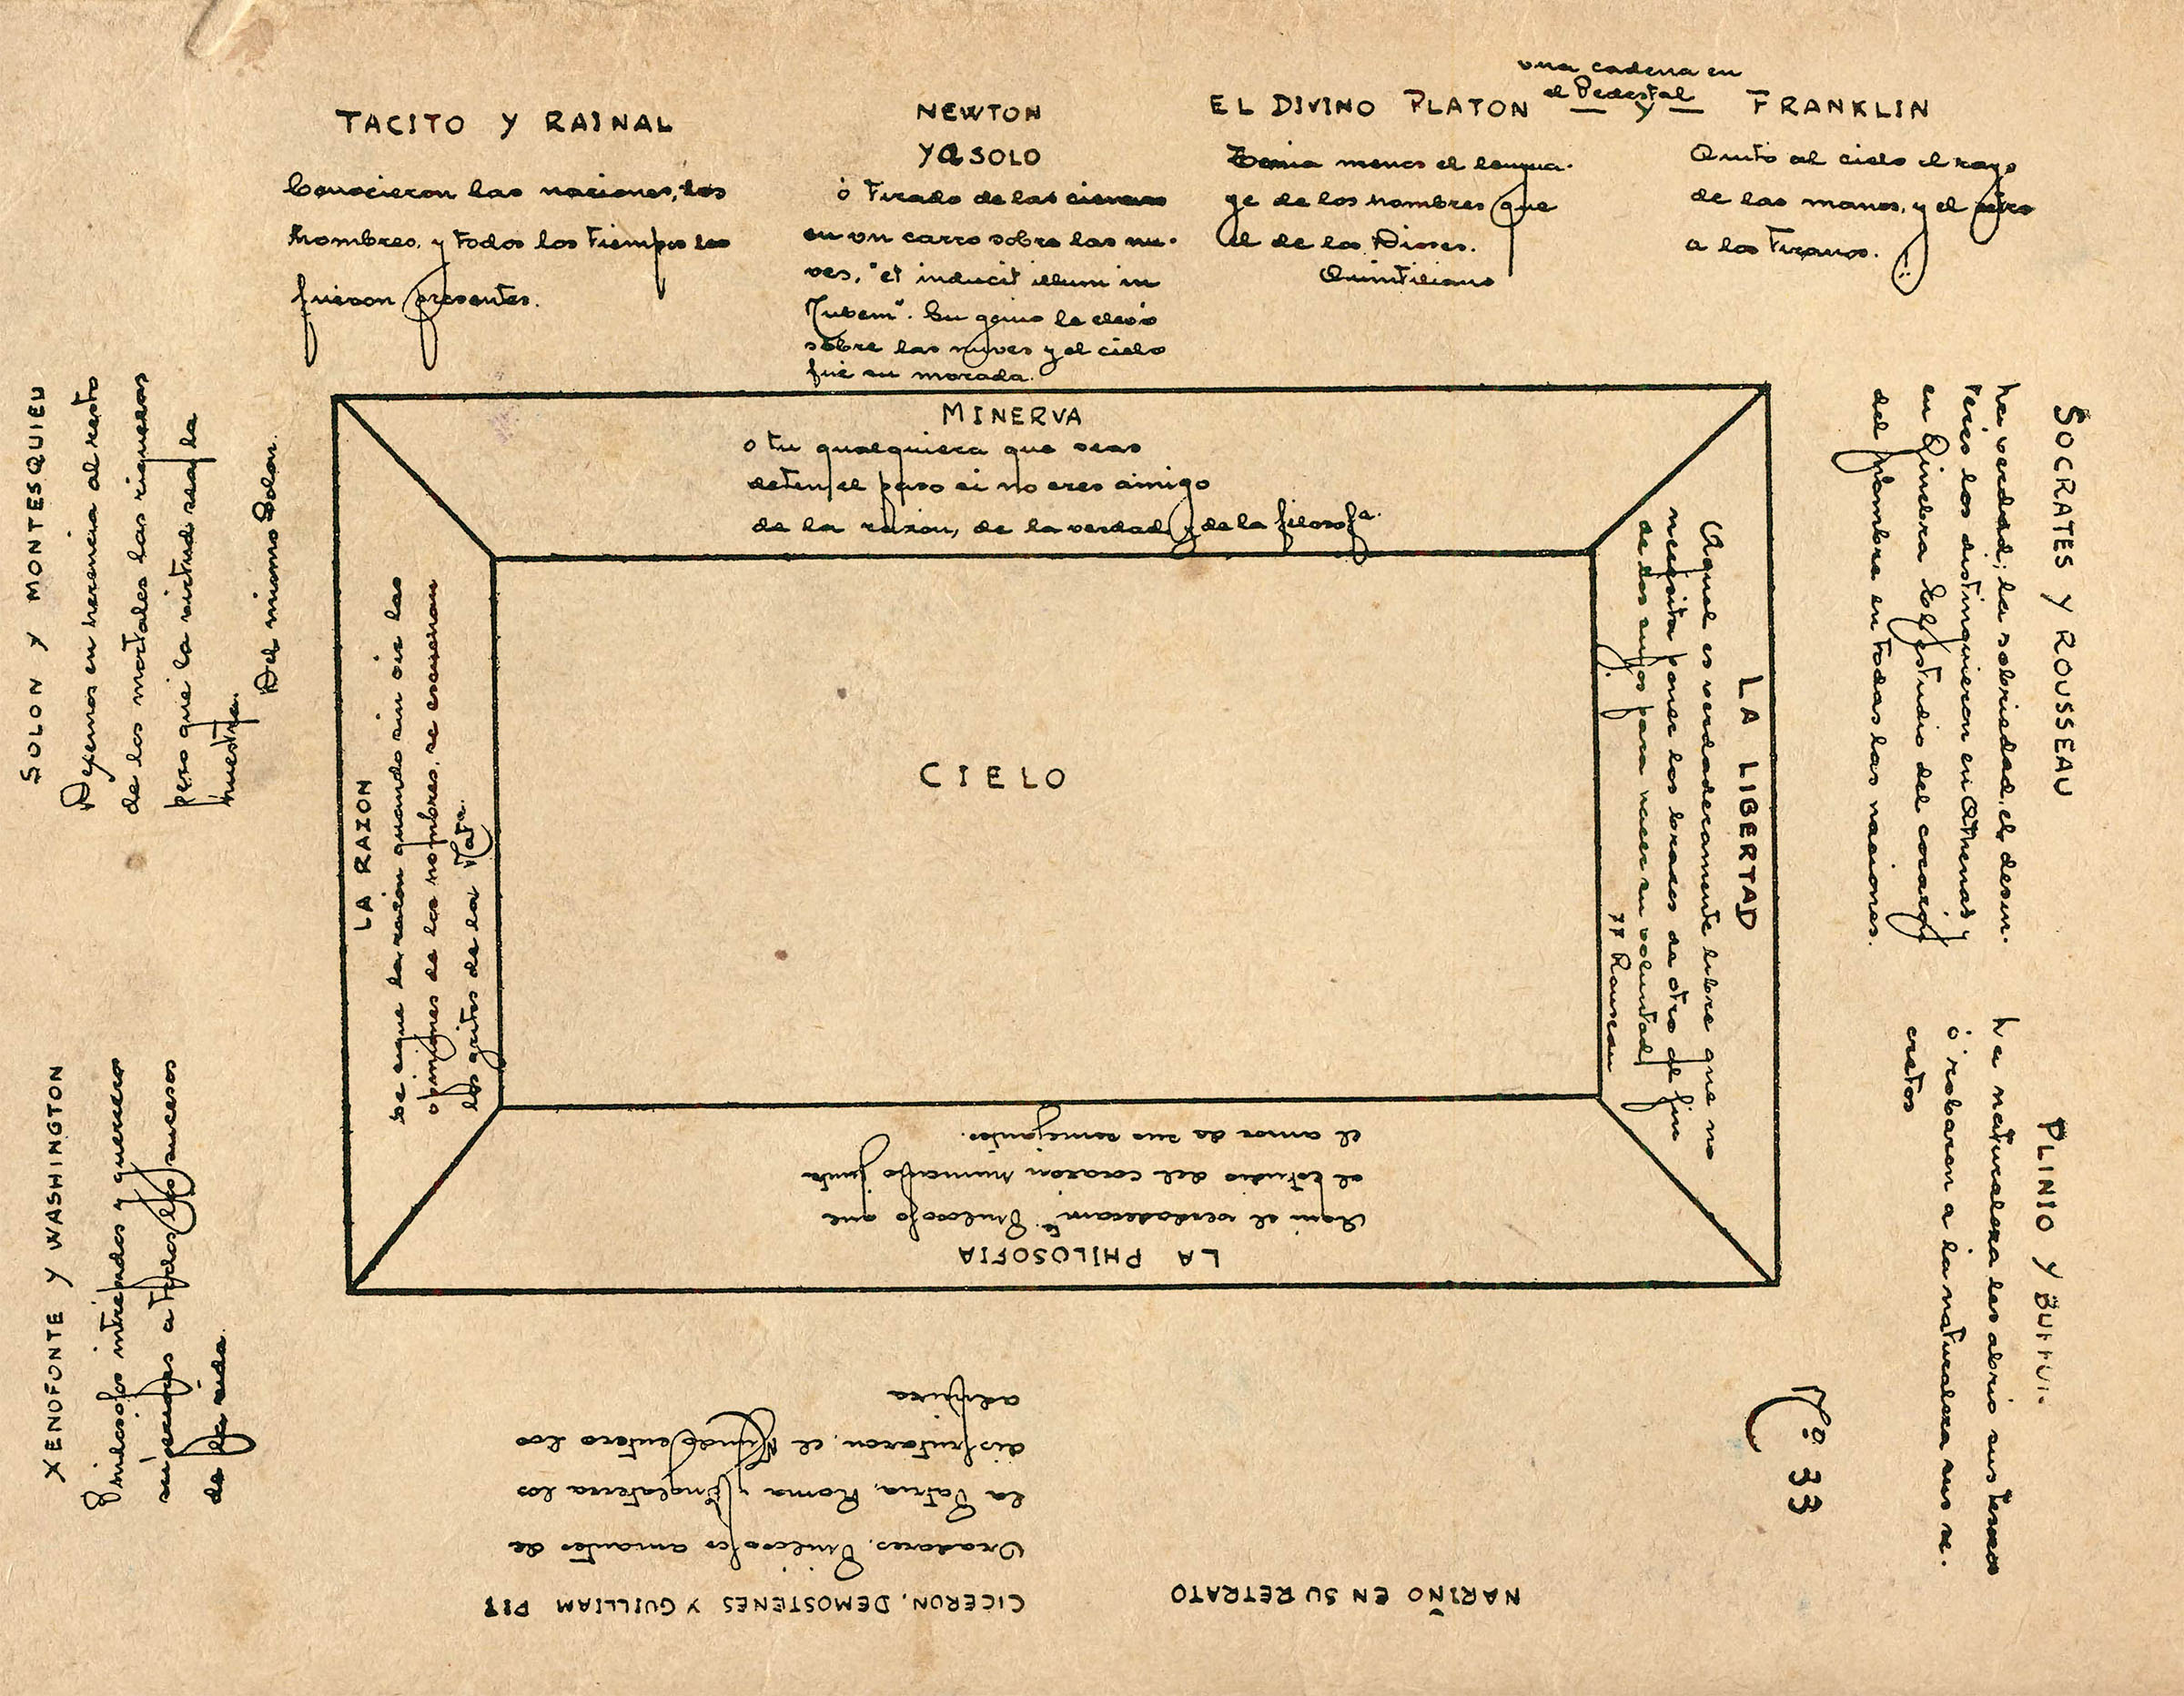 TACITO Y RAINAL
Conocieron las naciones, los
hombres, y todos los tiempos les
fueron presentes.
NEWTON
YA SOLO
ó tirado de las ciencias
en un carro sobre las nu-
ves, "et inducit illum in
Nubem". Su genio le elevó
sobre las nuves y el cielo
fué su morada.
una cadena en
el Pedestal
EL DIVINO PLATON — Y — FRANKLIN
Tenia menos el lengua-
ge de los hombres que
el de los Dioses.
Quintiliano
Quitó al cielo el rayo
de las manos, y el cetro
a los Tiranos.
SOLON Y MONTESQUIEU
Dejemos en herencia al resto
de los mortales las riquezas
pero que la virtud sea la
nuestra.
Del mismo Solon.
XENOFONTE Y WASHINGTON
Philosofos intrepidos y guerreros
superiores a todos los sucesos
de la vida.
MINERVA
o tu qualquiera que seas
deten el paso si no eres amigo
de la razon, de la verdad y de la filosofa.
LA RAZON
Se sigue la razon quando sin oir las
opiniones de los hombres, se escuchan
los gritos de la Nata.
CIELO
LA LIBERTAD
Aquel es verdaderamente libre que no
necesita poner los brazos de otro al fin
de los suyos para hacer su voluntad
JJ Rouseau
LA PHILOSOFIA
Aqui el verdaderamte. Philosofo que
al estudio del corazon humano junta
el amor de sus semejantes.
SOCRATES Y ROUSSEAU
La verdad; la sobriedad, el desin-
teres los distinguieron en Athenas y
en Ginebra. El estudio del corazon
del hombre en todas las naciones.
PLINIO Y BUFFON
La naturaleza les abrio sus tesoros
ó robaron a la naturaleza sus se-
cretos
No. 33
CICERON, DEMOSTENES Y GUILLIAM PIT
Oradores, Philosofos amantes de
la Patria, Roma y Inglaterra los
disfrutaron, el Mundo entero los
admira
NARIÑO EN SU RETRATO